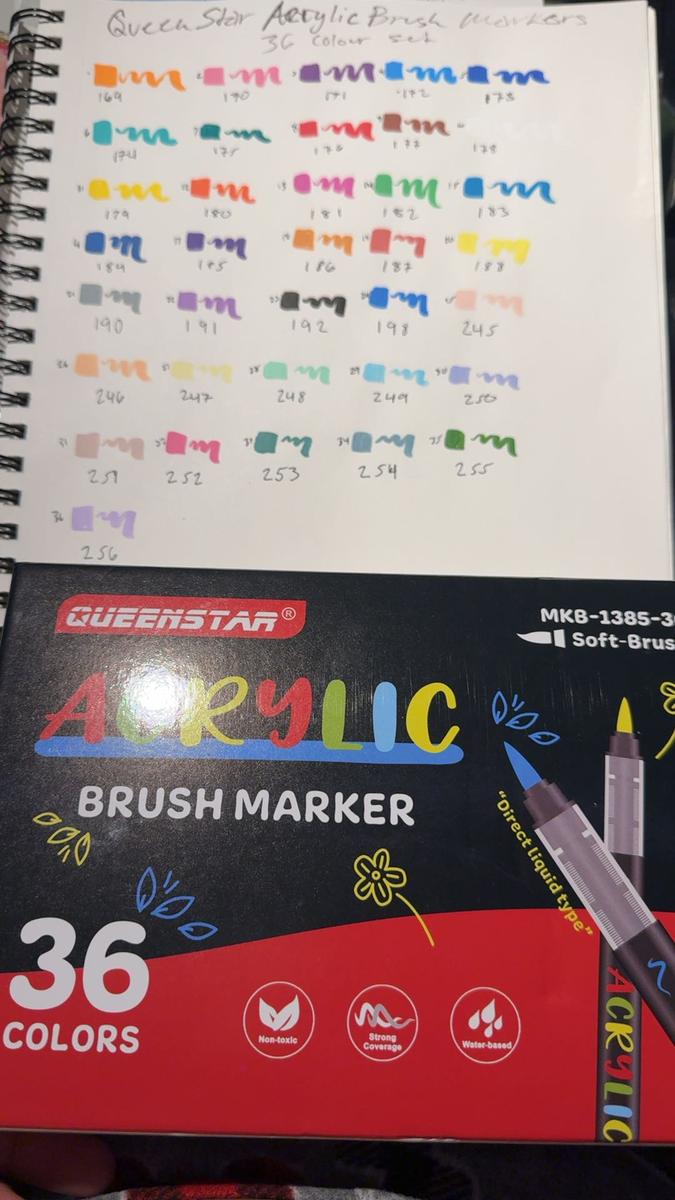 Queen Star Acrylic Brush Markers
36 colour set
169 170 171 172 173
174 175 176 177 178
179 180 181 182 183
184 185 186 187 188
190 191 192 198 245
26 27 28 29 30
246 247 248 249 250
251 252 253 254 255
36
256
QUEENSTAR®
MKB-1385-3
Soft-Brus
ACRYLIC
BRUSH MARKER
"Direct liquid type"
36
COLORS
Non-toxic
Strong
Coverage
Water-based
ACRYLIC